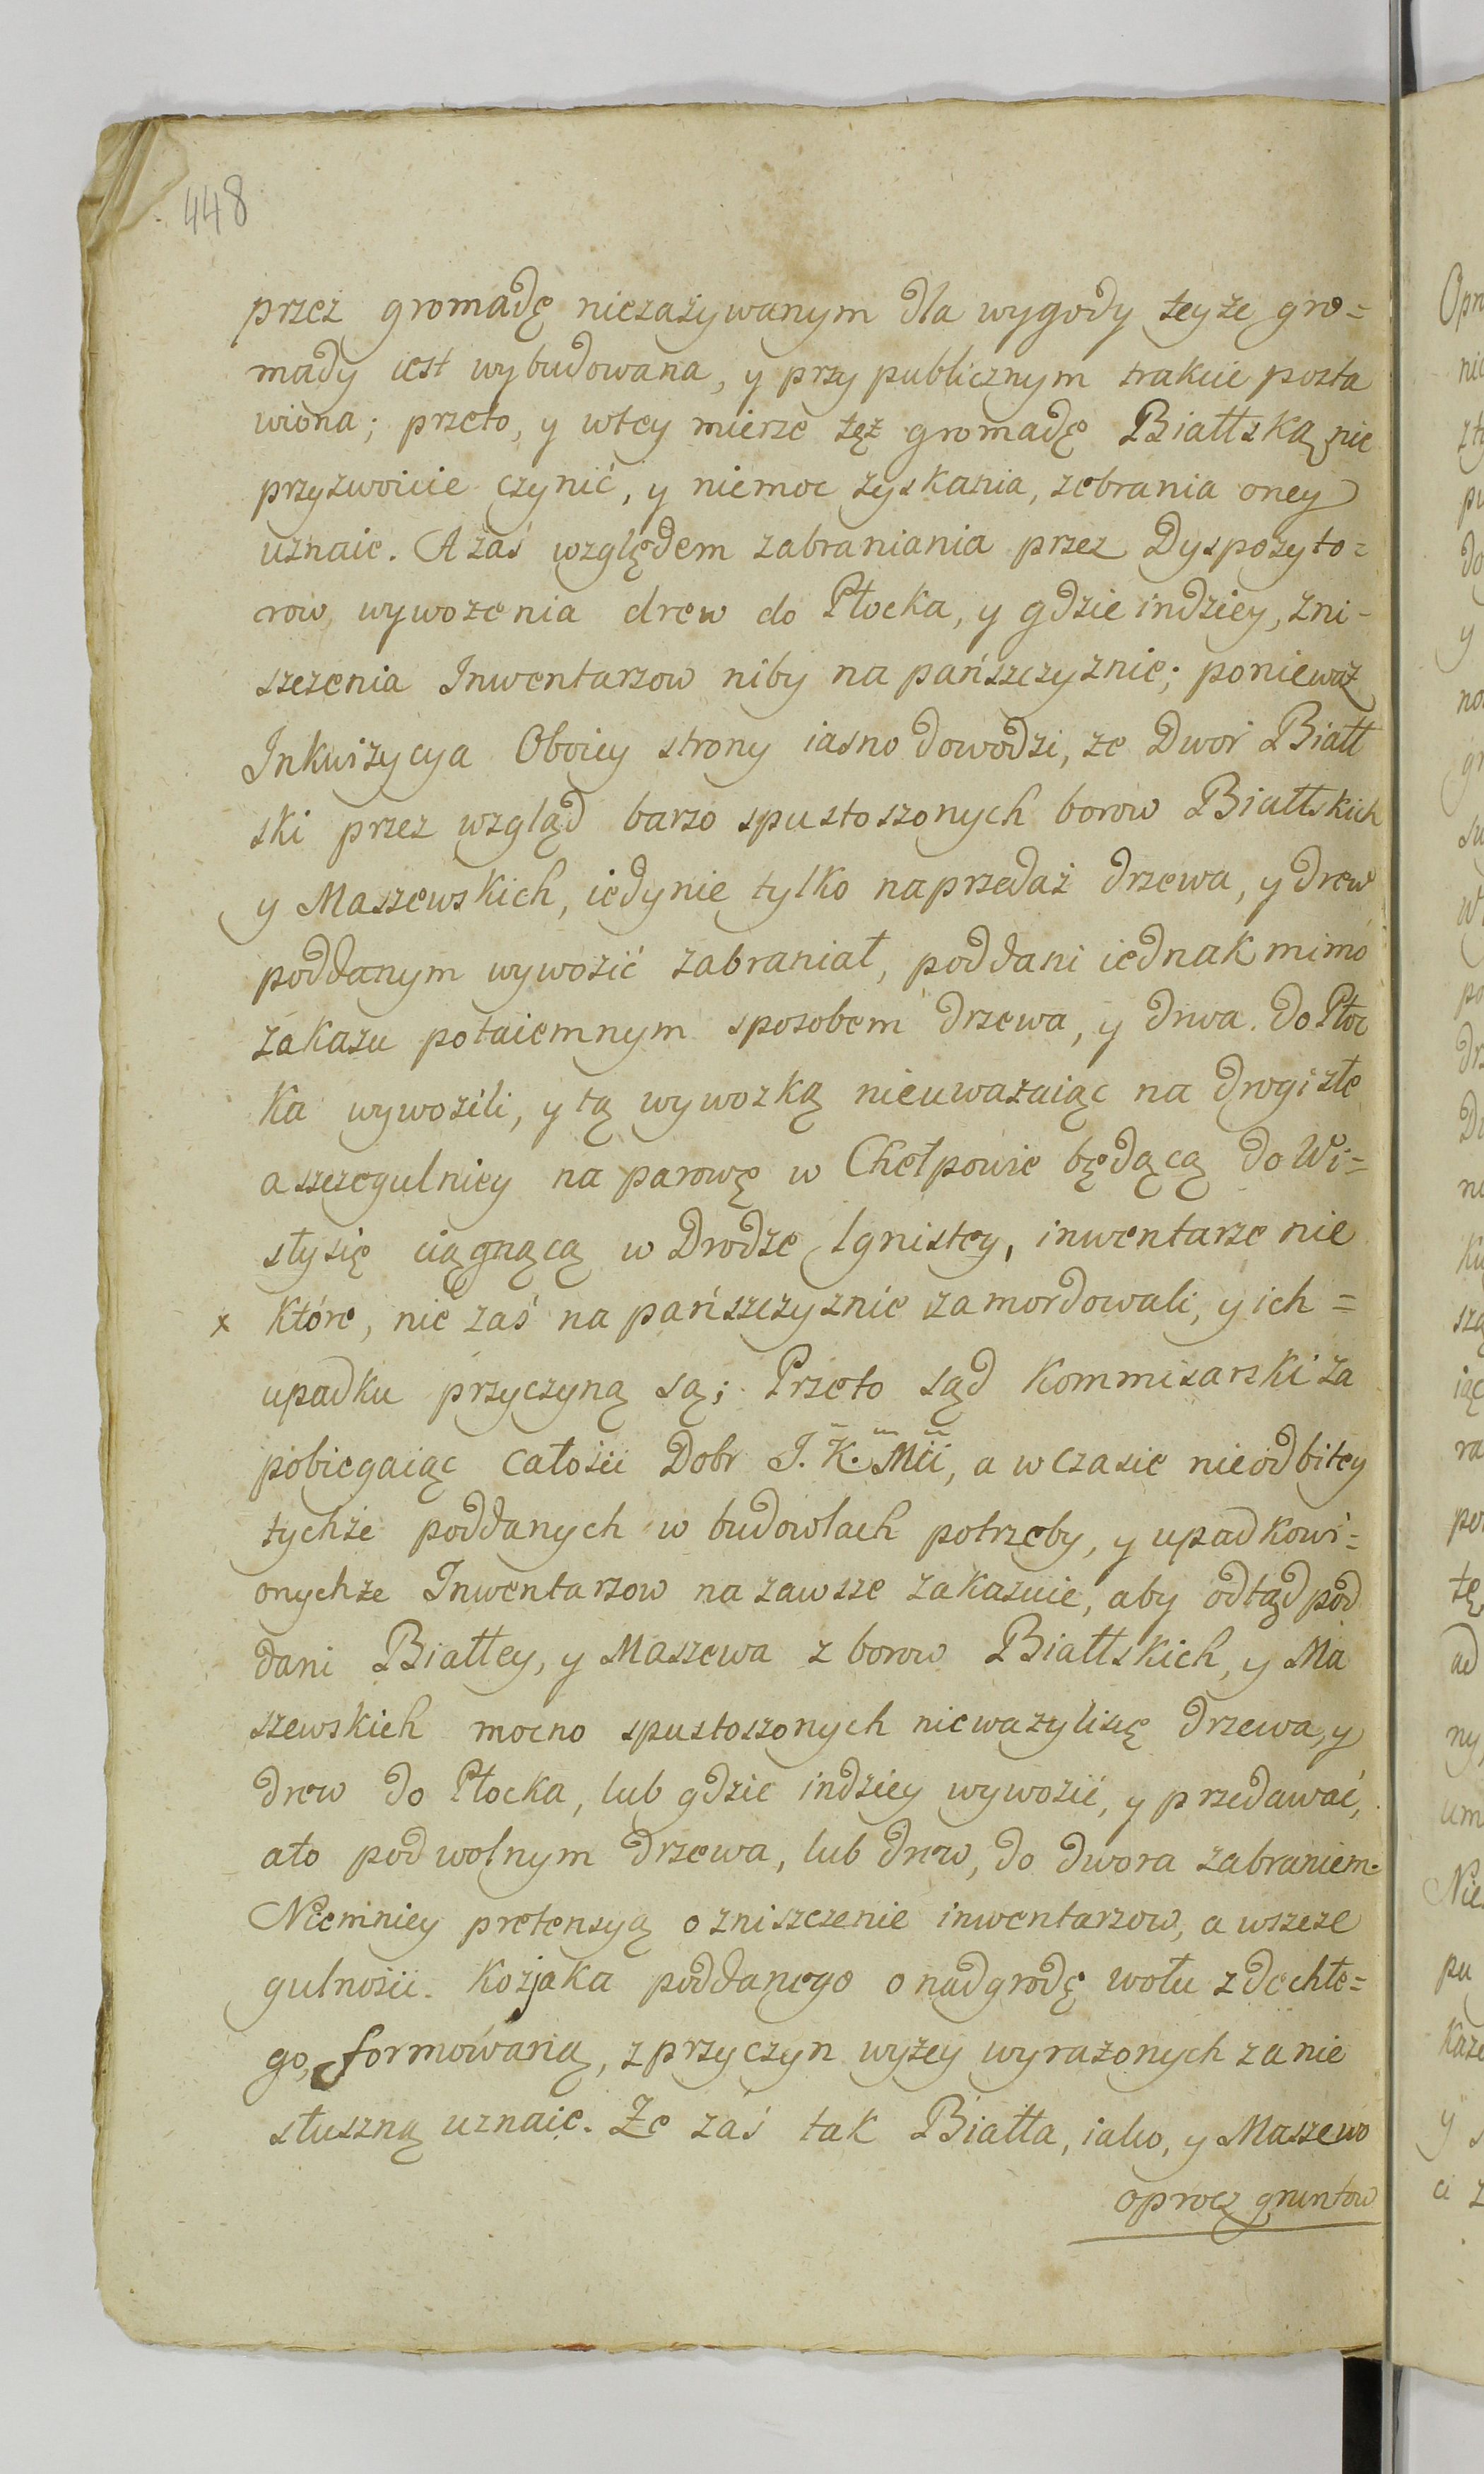 448
przez gromadę niezażywanym dla wygody teyże gro=
mady iest wybudowana, y przy publicznym trakcie posta
wiona; przeto, y wtey mierze tęż gromadę Białłską nie
przyzwoicie czynić, y niemoc zyskania, zebrania oney
uznaie. A zaś względem zabraniania przez Dyspozyto=
row, wywozenia drew do Płocka, y gdzie indziey, zni-
szczenia Inwentarzow niby na pańszczyznie; ponieważ
Inkwizycya Oboiey strony iasno dowodzi, ze Dwor Białł
ski przez wzgląd barzo spustoszonych borow Białłskich
y Maszewskich, iedynie tylko naprzedaż drzewa, y drew
poddanym wywozić zabraniał, poddani iednak mimo
zakazu potaiemnym sposobem drzewa, y drwa do Płoc
ka wywozili, y tą wywozką nieuwazaiąc na drogi złe
a szczegulniey na parowę w Chełpowie będącą do Wi=
sły się ciągnącą w Drodze Ignistey, inwentarze nie
x które, nie zaś na pańszczyznie zamordowali, y ich =
upadku przyczyną są; Przeto sąd Kommisarski za
pobiegaiąc całosci Dobr J. K. Mci, a w czasie nieodbitey
tychże poddanych w budowlach potrzeby, y upadkowi=
onychże Inwentarzow na zawsze zakazuie, aby odtąd pod
dani Białłey, y Maszewa z borow Białłskich, y Ma
szewskich mocno spustoszonych nieważyli się drzewa, y
drew do Płocka, lub gdzie indziey wywozić, y przedawać,
ato pod wolnym drzewa, lub drew, do dwora zabraniem.
Niemniey pretensyą o zniszczenie inwentarzow, a wszcze
gulnosci Kozjaka poddanego o nadgrodę wołu zdechłe=
go, formowaną, z przyczyn wyżey wyrażonych za nie
słuszną uznaie. Że zaś tak Białła, iako, y Maszewo
oprocz gruntow